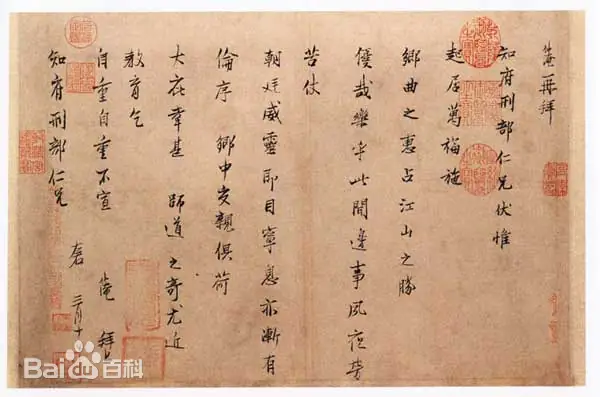 淹再拜
知府刑部仁兄伏惟
起居萬福施
鄉曲之惠占江山之勝
優哉樂乎此間邊事夙夜勞
苦仗
朝廷威靈即目寧息亦漸有
倫序鄉中交親俱荷
大庇幸甚師道之奇尤近
教育乞
自重自重不宣 淹 拜
知府刑部仁兄 三月十
Bai度百科